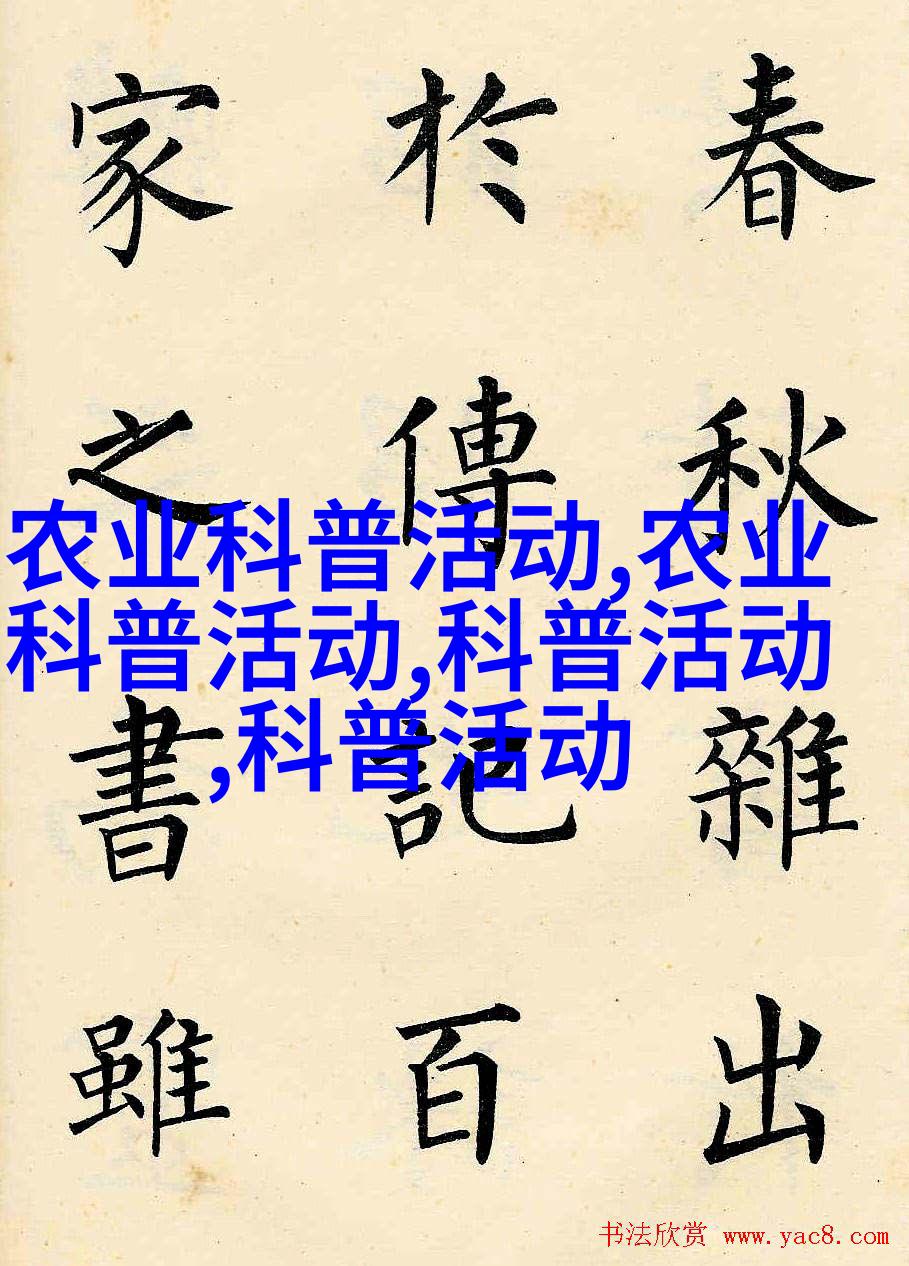 春秋雜出
於傳記百
家之書雖
农业科普活动,农业
科普活动,科普活动
,科普活动
书法欣赏 www.yac8.com